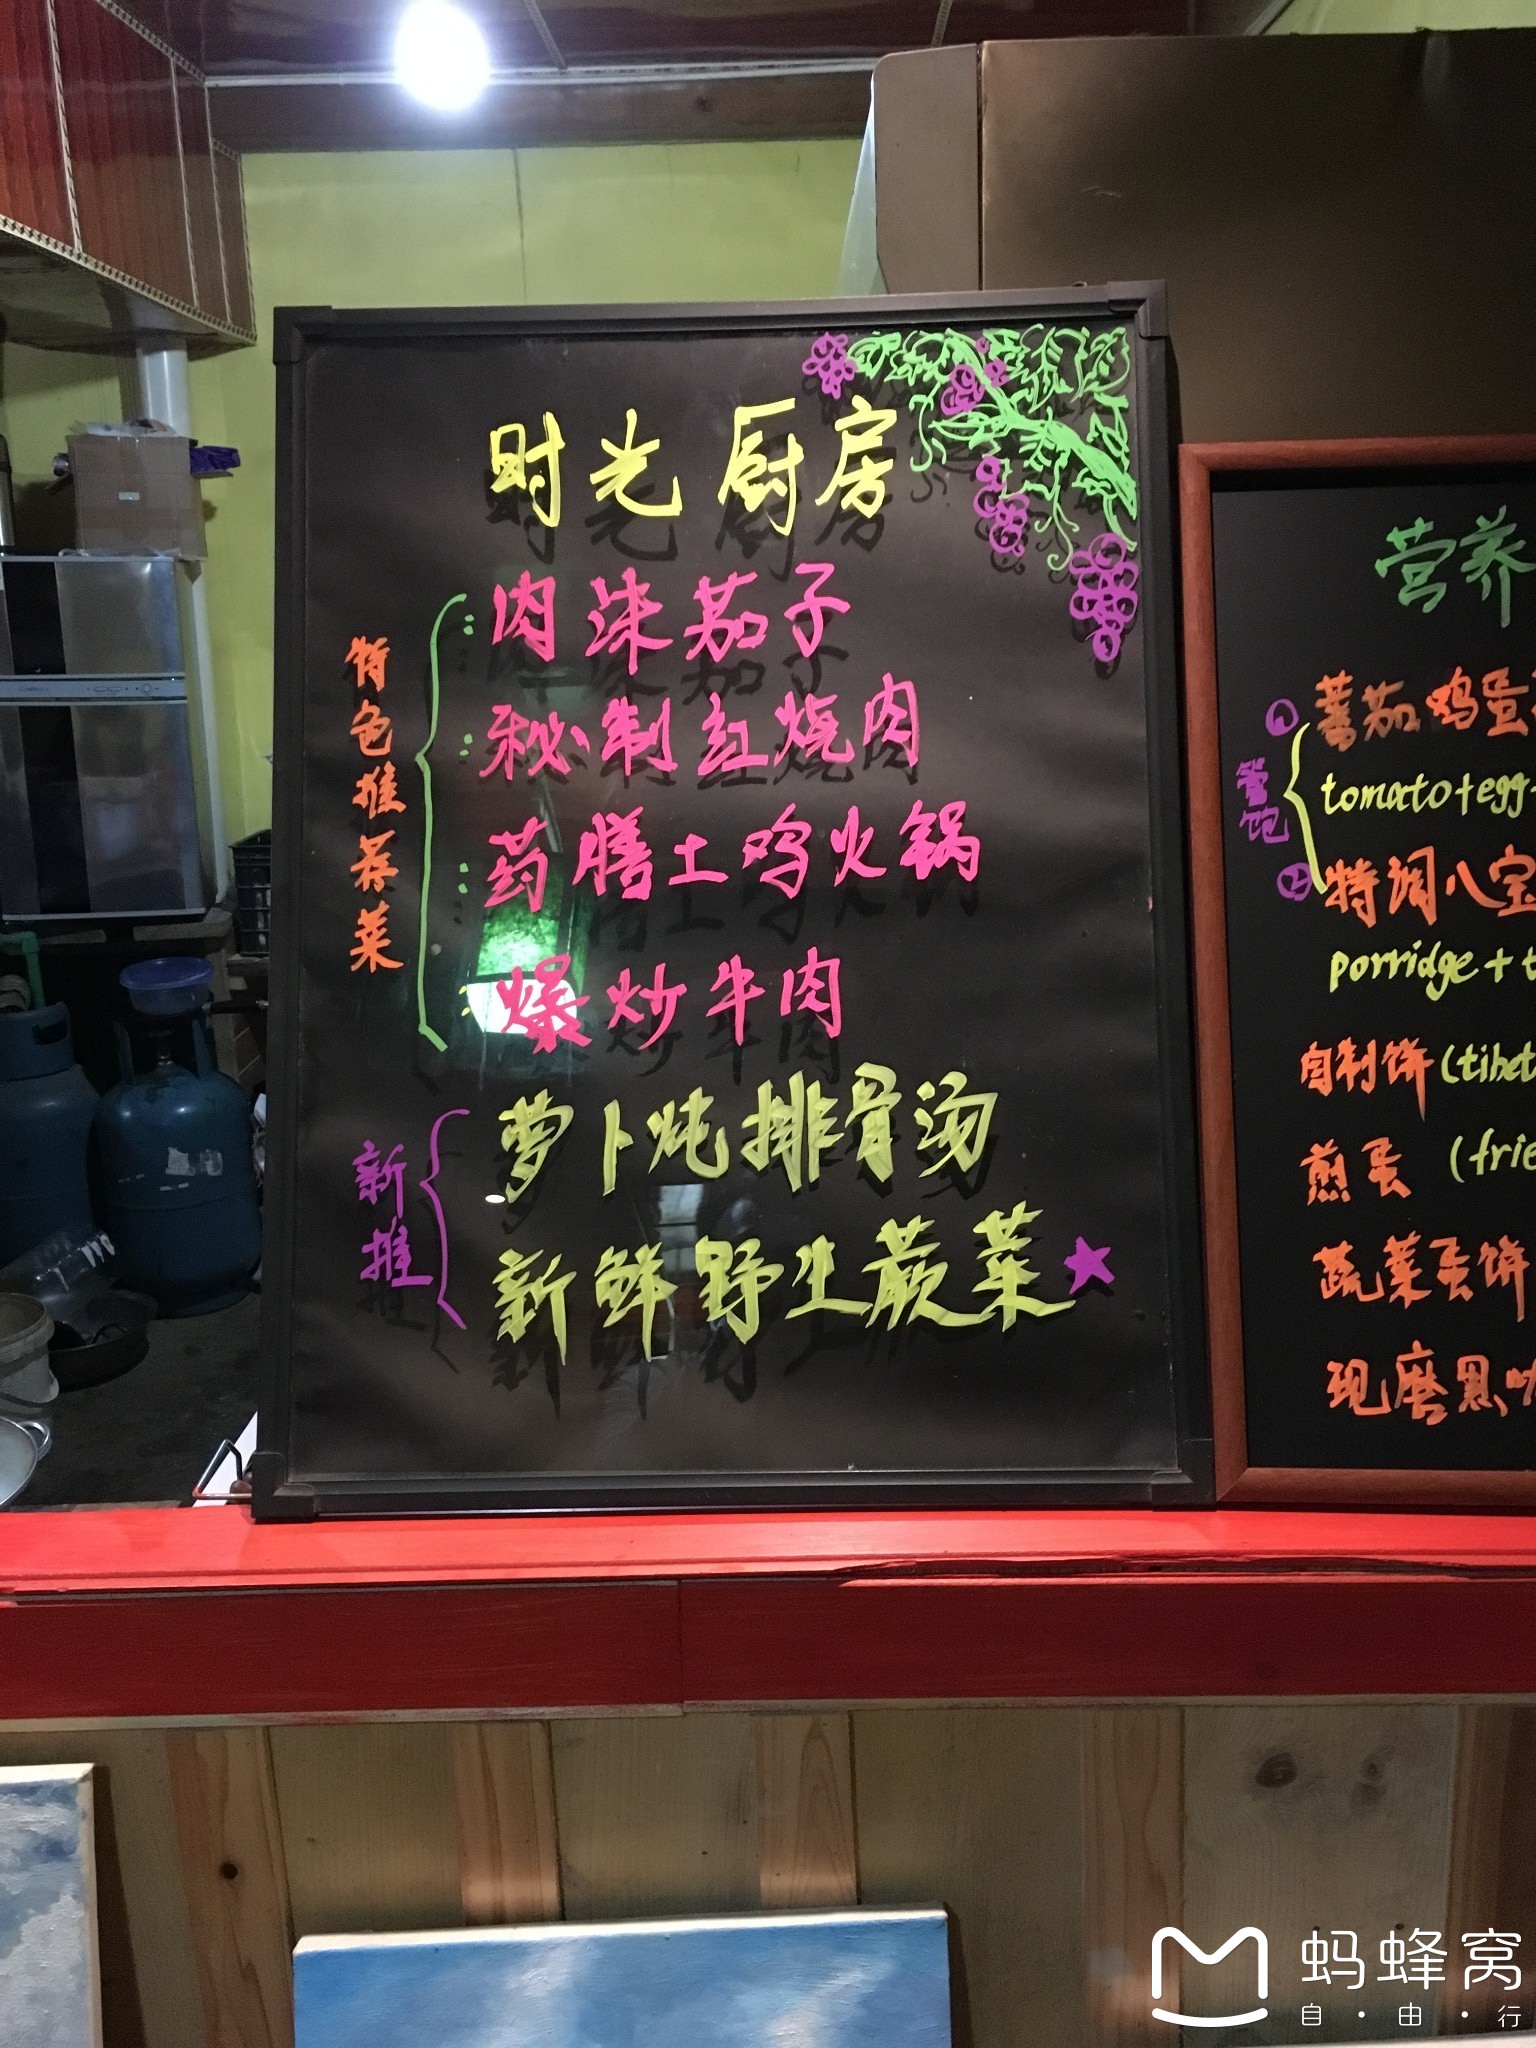 时光厨房
特色推荐菜
肉沫茄子
秘制红烧肉
药膳土鸡火锅
爆炒牛肉
新推
萝卜炖排骨汤
新鲜野生蕨菜
营养
管饱
①
蕃茄鸡蛋
tomato+egg
②
特调八宝
porridge+
自制饼(tibet
煎蛋 (frie
蔬菜蛋饼
现磨
蚂蜂窝
自·由·行